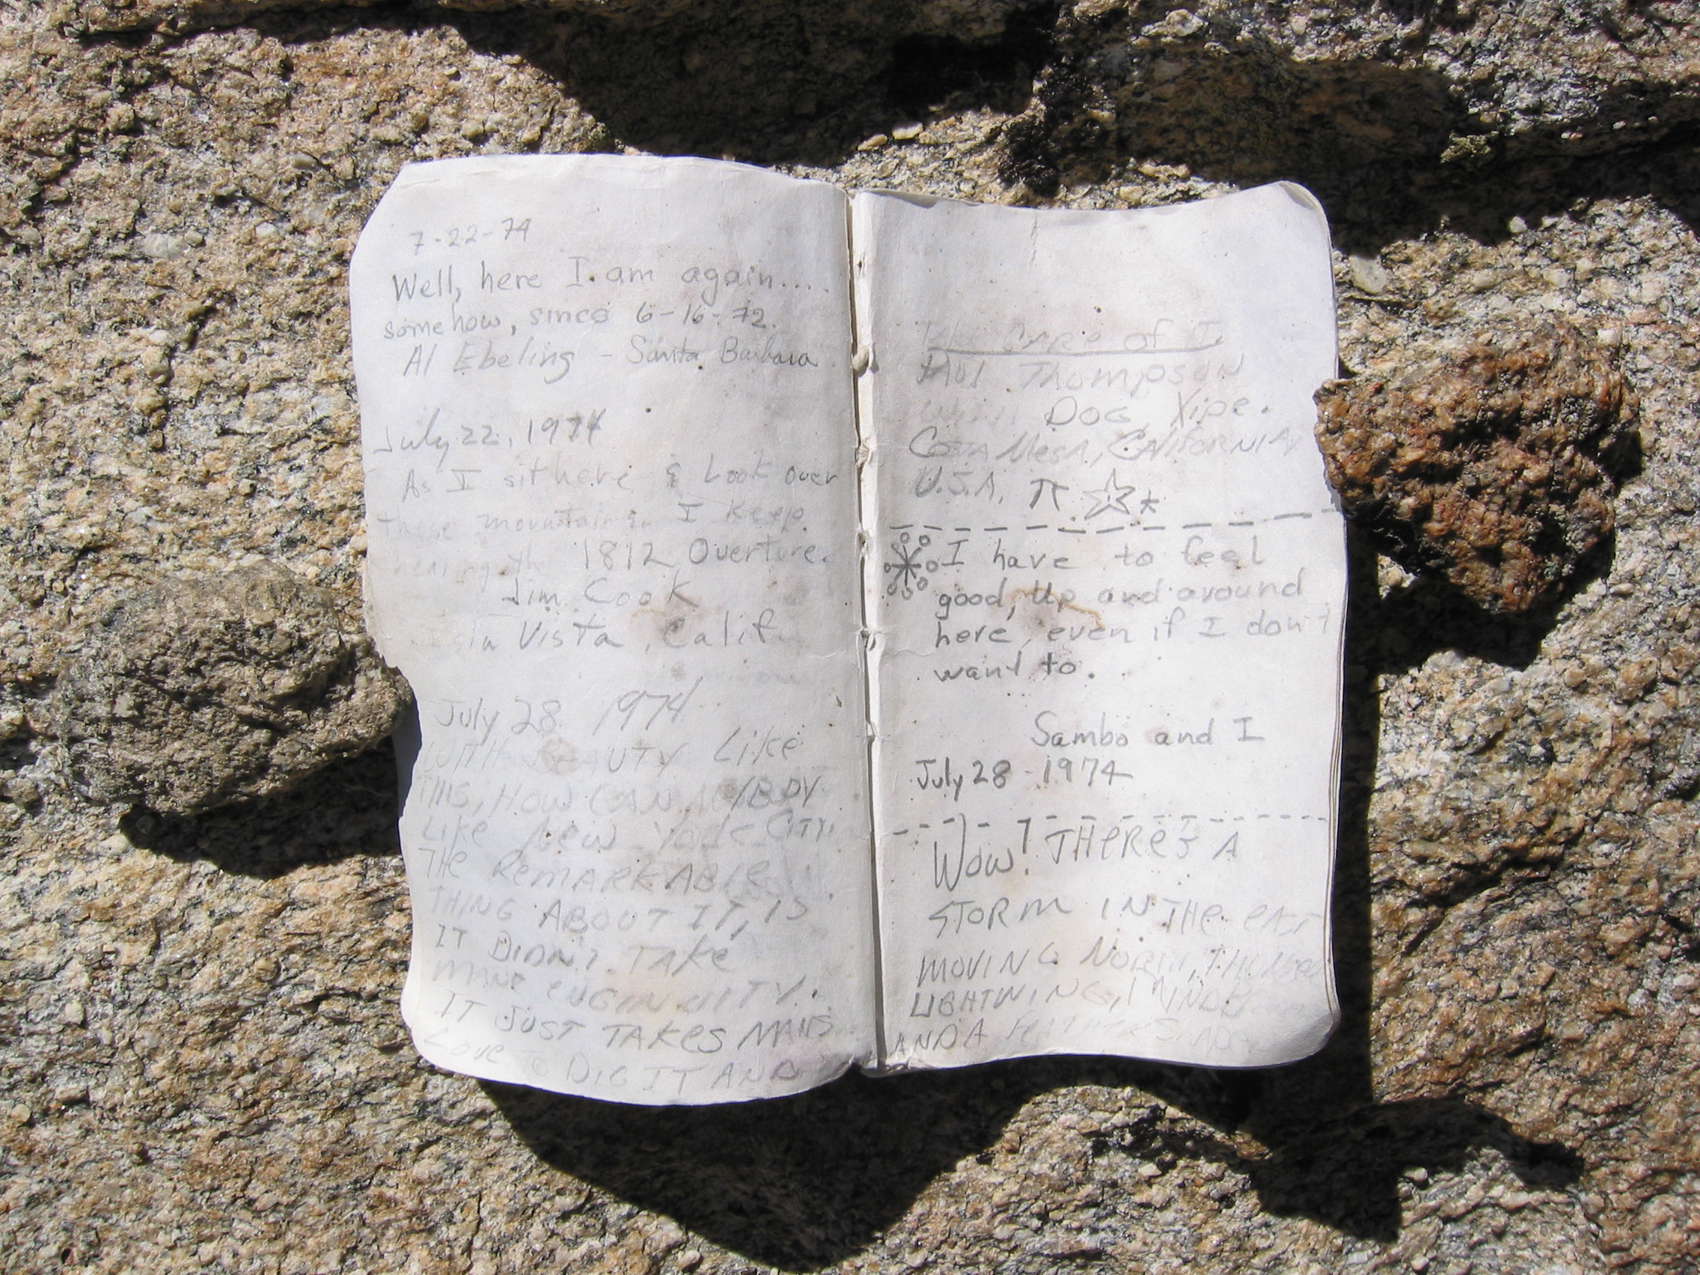 7-22-74
Well, here I am again....
somehow, since 6-16-72.
Al Ebeling - Santa Barbara
July 22, 1974
As I sit here & Look over
these mountains I keep
hearing the 1812 Overture.
Jim Cook
Vista, Calif
July 28 1974
WITH BEAUTY Like
THIS, HOW CAN ANYBODY
Like New York CITY.
THE REMARKABLE
THING ABOUT IT, IS
IT DIDN'T TAKE
MANS
IT JUST TAKES MANS
Love TO DIG IT AND
Care of I
Paul Thompson
Dog Xipe.
Costa Mesa, CALIFORNIA
U.S.A. π ☆ *
I have to feel
good, Up and around
here, even if I don't
want to.
Sambo and I
July 28 1974
Wow! THERE'S A
STORM IN THE EAST
MOVING NORTH,
LIGHTNING,
AND A